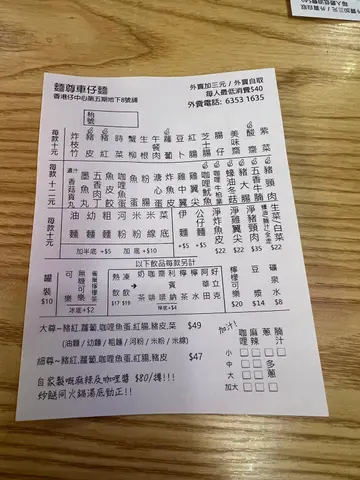 麵尊車仔麵
香港仔中心第五期地下8號舖
外賣加三元 / 外賣自取
每人最低消費$40
外賣電話: 6353 1635
枱號
每款十元
炸枝竹
豬皮
豬紅
時菜
蟹柳
生根
午餐肉
蘿蔔
紅腸
芝士腸
腸仔
美味齋
酸齋
紫菜
每款十二元
濃汁香菇貢丸
墨魚丸
五香肉丁
魚皮餃
咖喱魚蛋
溏心蛋
炸魚皮
雞中翼
咖喱魷魚
蠔油冬菇
豬大腸
五香牛腩
豬頸肉
每款十元
油麵
幼麵
粗麵
河粉
米粉
米線
底
伊麵 +$5
公仔麵 +$5
淨魚皮 $22
淨雞翼 $22
淨豬頸肉 $35
生菜/白菜 $22
加半底 +$5
加底 +$10
以下飲品每款另計
罐裝$10
可樂
無糖可樂
冰底+$2
熱飲 $17
凍飲 $19
奶茶
咖啡
檸茶
檸啡
阿華田
好立克
檸樂+$4
檸檬可樂 $20
豆漿 $14
礦泉水 $8
大尊~豬紅,蘿蔔,咖喱魚蛋,紅腸,豬皮,菜 $49
(油麵 / 幼麵 / 粗麵 / 河粉 / 米粉 / 米線)
細尊~豬紅,蘿蔔,咖喱魚蛋,紅腸,豬皮 $47
自家製嘅麻辣及咖喱醬 $80/樽!!!
炒餸同火鍋湯底勁正!!
加汁!
咖喱
麻辣
蔥
腩汁
小
中
大
加大
多蔥